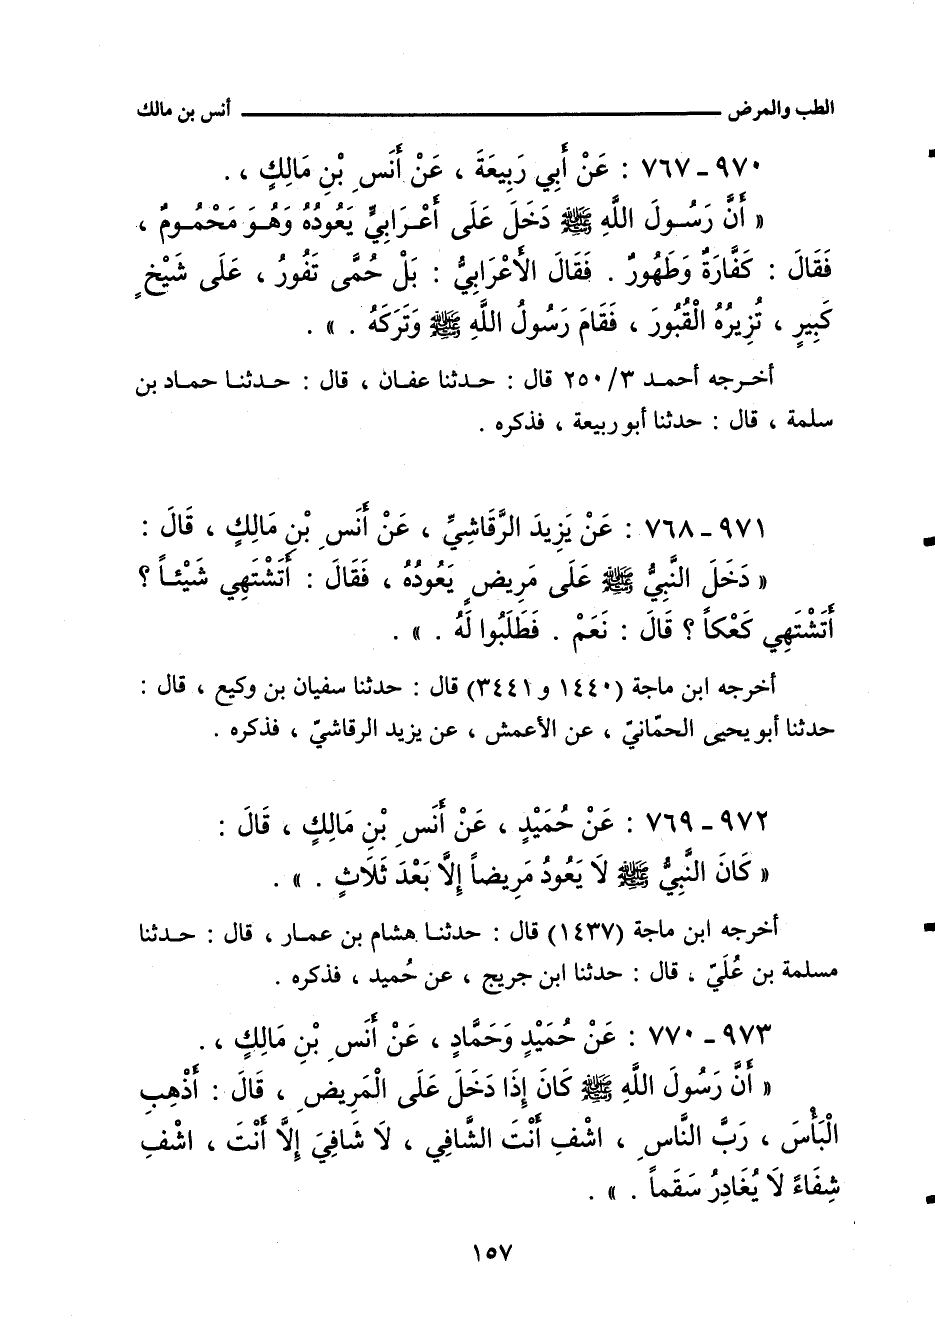 الطب والمرض ــــــــــــــــــــــ أنس بن مالك
٩٧٠ ـ ٧٦٧ : عَنْ أَبِي رَبِيعَةَ ، عَنْ أَنَسِ بْنِ مَالِكٍ ، .
« أَنَّ رَسُولَ اللَّهِ ﷺ دَخَلَ عَلَى أَعْرَابِيٍّ يَعُودُهُ وَهُوَ مَحْمُومٌ ،
فَقَالَ : كَفَّارَةٌ وَطَهُورٌ . فَقَالَ الأَعْرَابِيُّ : بَلْ حُمَّى تَفُورُ ، عَلَى شَيْخٍ
كَبِيرٍ ، تُزِيرُهُ الْقُبُورَ ، فَقَامَ رَسُولُ اللَّهِ ﷺ وَتَرَكَهُ . » .
أخرجه أحمد ٣/ ٢٥٠ قال : حدثنا عفان ، قال : حدثنا حماد بن
سلمة ، قال : حدثنا أبو ربيعة ، فذكره .
٩٧١ ـ ٧٦٨ : عَنْ يَزِيدَ الرَّقَاشِيِّ ، عَنْ أَنَسِ بْنِ مَالِكٍ ، قَالَ :
« دَخَلَ النَّبِيُّ ﷺ عَلَى مَرِيضٍ يَعُودُهُ ، فَقَالَ : أَتَشْتَهِي شَيْئاً ؟
أَتَشْتَهِي كَعْكاً ؟ قَالَ : نَعَمْ . فَطَلَبُوا لَهُ . » .
أخرجه ابن ماجة (١٤٤٠ و ٣٤٤١) قال : حدثنا سفيان بن وكيع ، قال :
حدثنا أبو يحيى الحمّانيّ ، عن الأعمش ، عن يزيد الرقاشيّ ، فذكره .
٩٧٢ ـ ٧٦٩ : عَنْ حُمَيْدٍ ، عَنْ أَنَسِ بْنِ مَالِكٍ ، قَالَ :
« كَانَ النَّبِيُّ ﷺ لَا يَعُودُ مَرِيضاً إِلَّا بَعْدَ ثَلَاثٍ . » .
أخرجه ابن ماجة (١٤٣٧) قال : حدثنا هشام بن عمار ، قال : حدثنا
مسلمة بن عُلَيّ ، قال : حدثنا ابن جريج ، عن حُميد ، فذكره .
٩٧٣ ـ ٧٧٠ : عَنْ حُمَيْدٍ وَحَمَّادٍ ، عَنْ أَنَسِ بْنِ مَالِكٍ ، .
« أَنَّ رَسُولَ اللَّهِ ﷺ كَانَ إِذَا دَخَلَ عَلَى الْمَرِيضِ ، قَالَ : أَذْهِبِ
الْبَأْسَ ، رَبَّ النَّاسِ ، اشْفِ أَنْتَ الشَّافِي ، لَا شَافِيَ إِلَّا أَنْتَ ، اشْفِ
شِفَاءً لَا يُغَادِرُ سَقَماً . » .
١٥٧